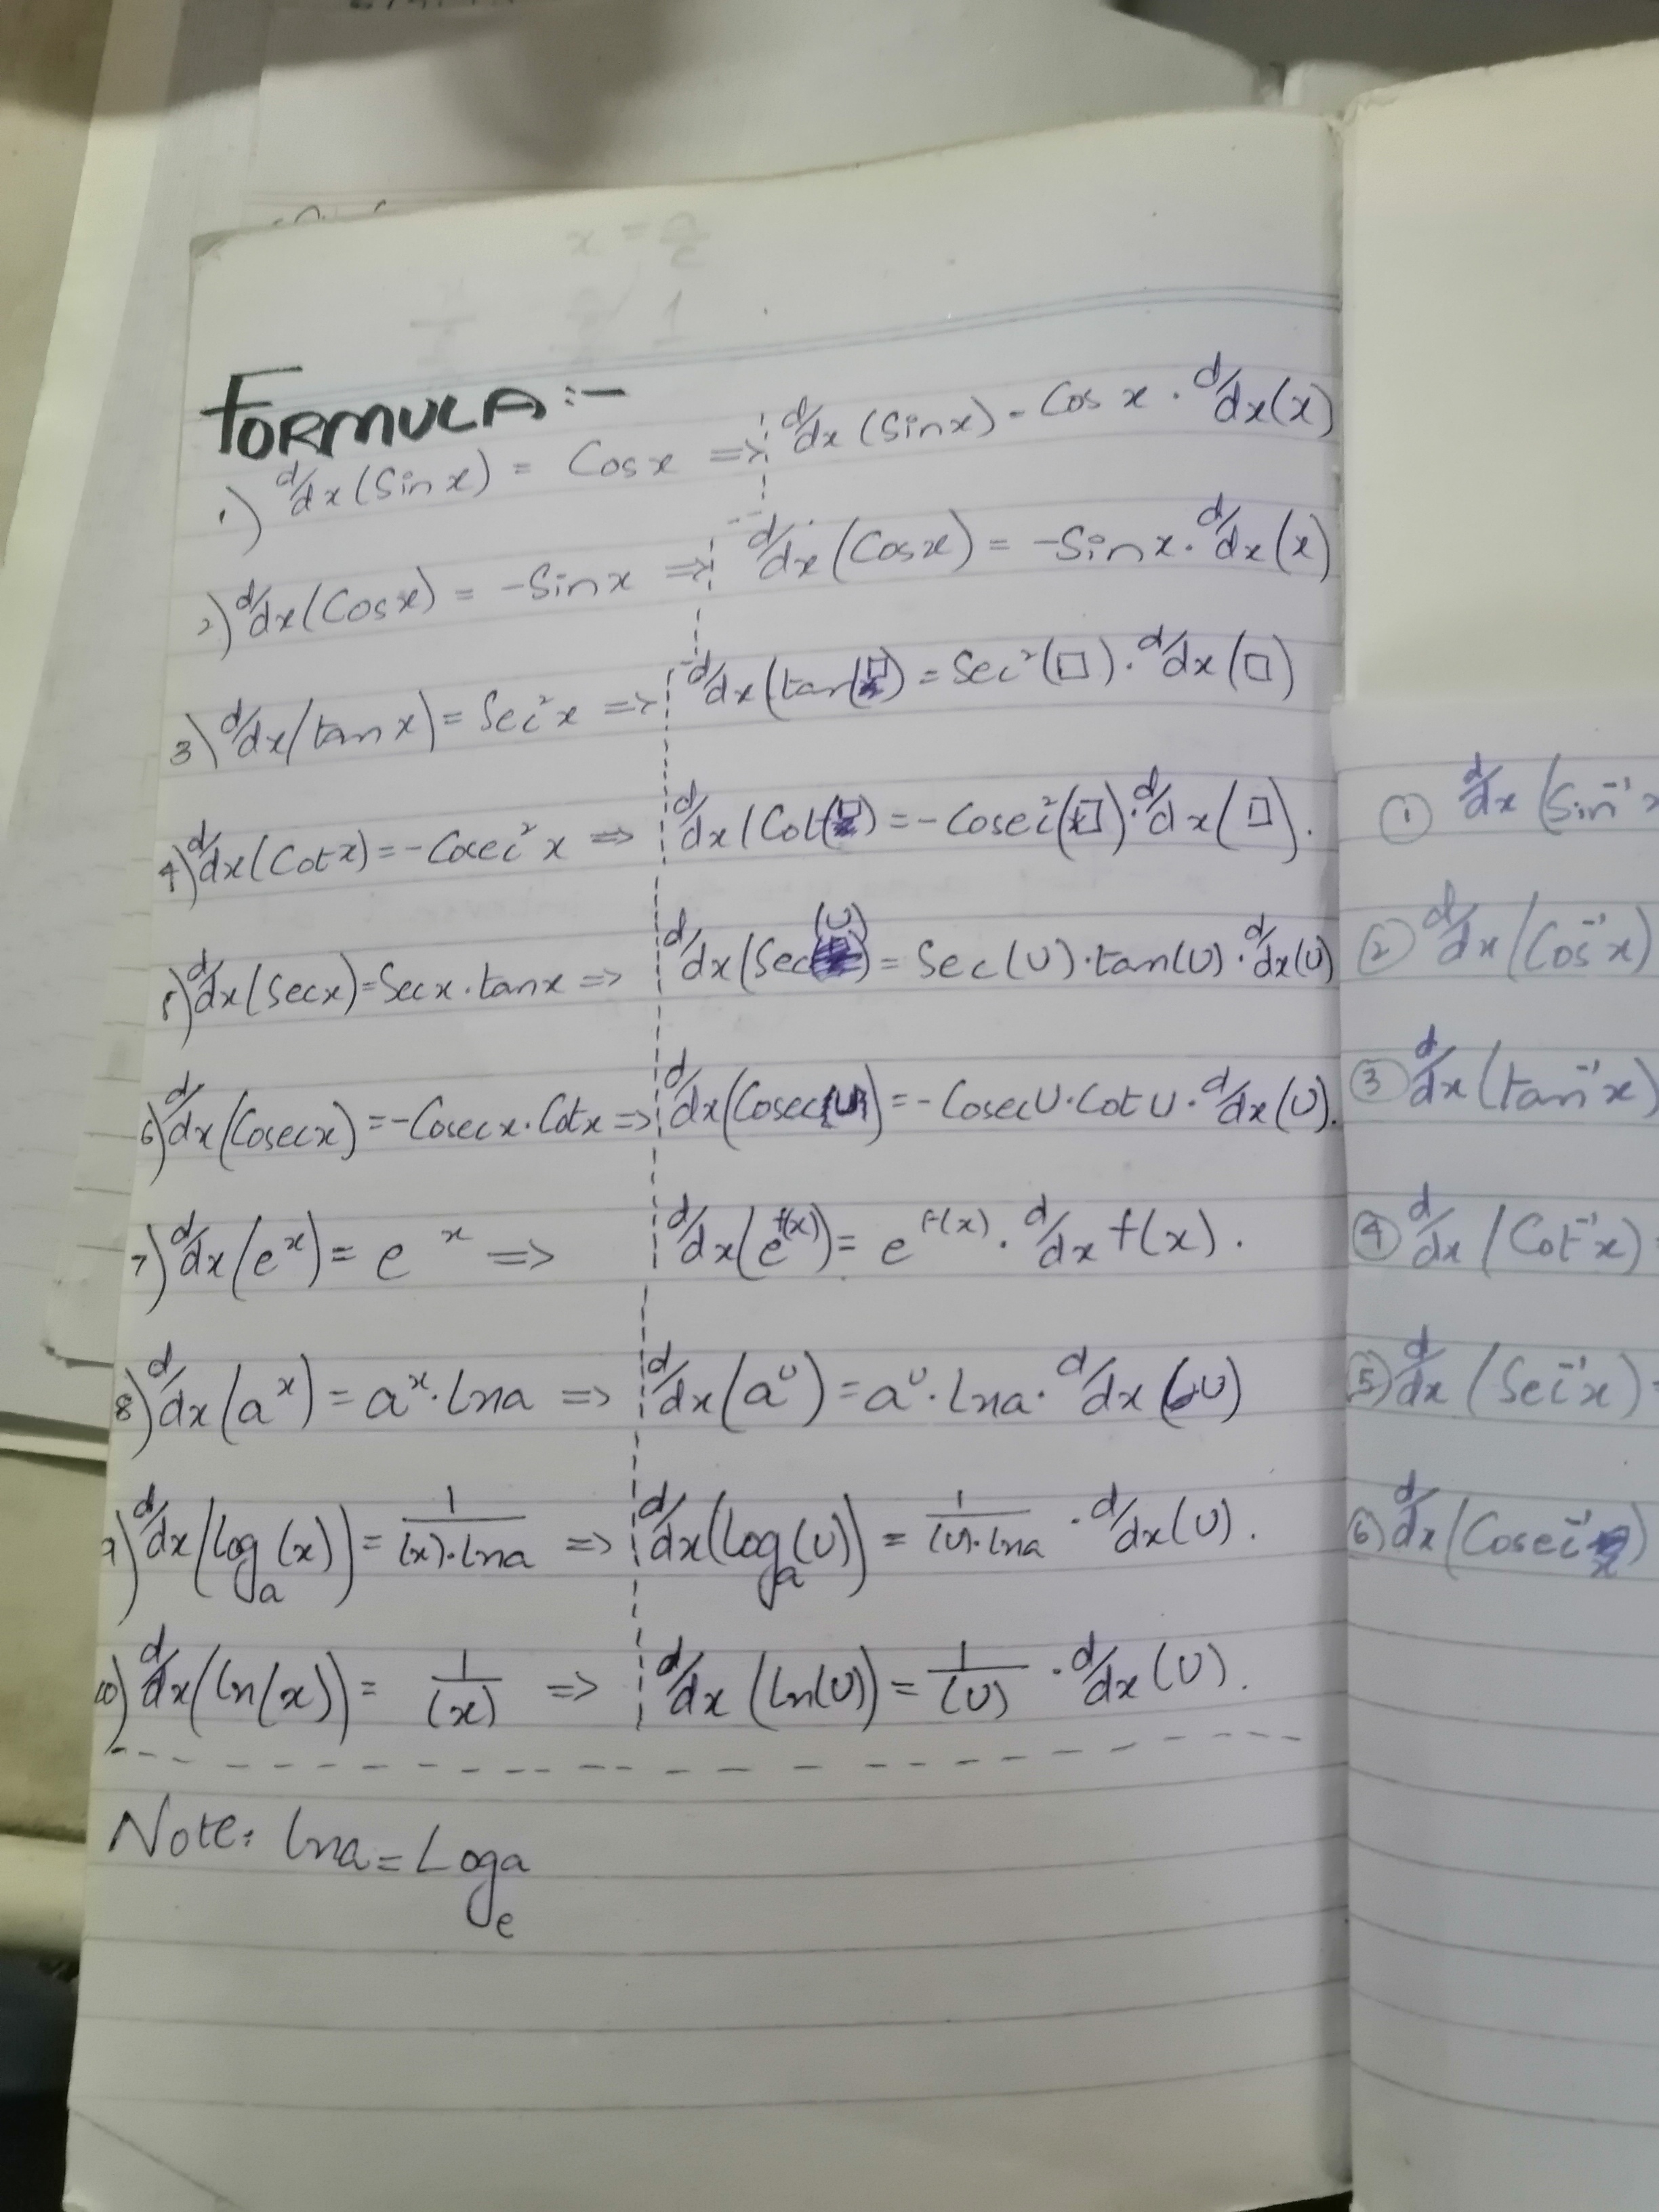 FORMULA:-
1) d/dx (Sin x) = Cos x => d/dx (Sin x) = Cos x . d/dx (x)
2) d/dx (Cos x) = -Sin x => d/dx (Cos x) = -Sin x . d/dx (x)
3) d/dx (tan x) = Sec²x => d/dx (tan(□)) = Sec²(□) . d/dx (□)
4) d/dx (Cot x) = -Cosec²x => d/dx (Cot(□)) = -Cosec²(□) . d/dx (□).
5) d/dx (Sec x) = Sec x . tan x => d/dx (Sec(U)) = Sec(U) . tan(U) . d/dx (U)
6) d/dx (Cosec x) = -Cosec x . Cot x => d/dx (Cosec(U)) = -Cosec U . Cot U . d/dx (U).
7) d/dx (e^x) = e^x => d/dx (e^f(x)) = e^f(x) . d/dx f(x).
8) d/dx (a^x) = a^x . lna => d/dx (a^U) = a^U . lna . d/dx (U)
9) d/dx (log_a (x)) = 1/(x).lna => d/dx (log_a (U)) = 1/(U).lna . d/dx (U).
10) d/dx (ln(x)) = 1/(x) => d/dx (ln(U)) = 1/(U) . d/dx (U).
Note: lna = Log_e a
① d/dx (Sin⁻¹ x
② d/dx (Cos⁻¹x)
③ d/dx (tan⁻¹x)
④ d/dx (Cot⁻¹x) =
⑤ d/dx (Sec⁻¹x) =
⑥ d/dx (Cosec⁻¹x)